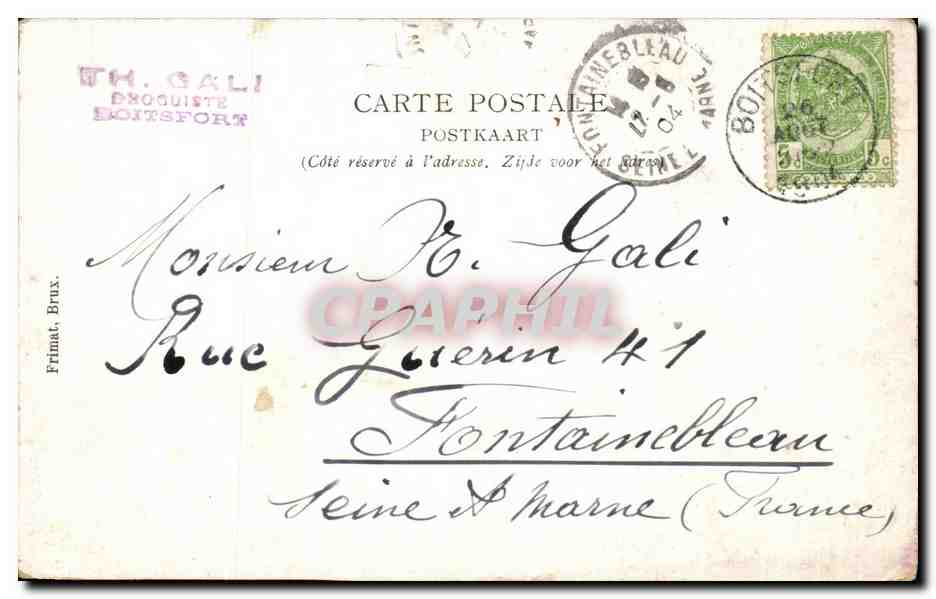 TH. GALI
DROGUISTE
BOITSFORT
CARTE POSTALE
POSTKAART
(Côté réservé à l'adresse. Zijde voor het adres)
FONTAINEBLEAU
SEINE
MARNE
04
BOITSFORT
26
AOUT
5c 5c
Monsieur N. Gali
CPAPHIL
Rue Guérin 41
Fontainebleau
Seine & Marne (France)
Frimat, Brux.